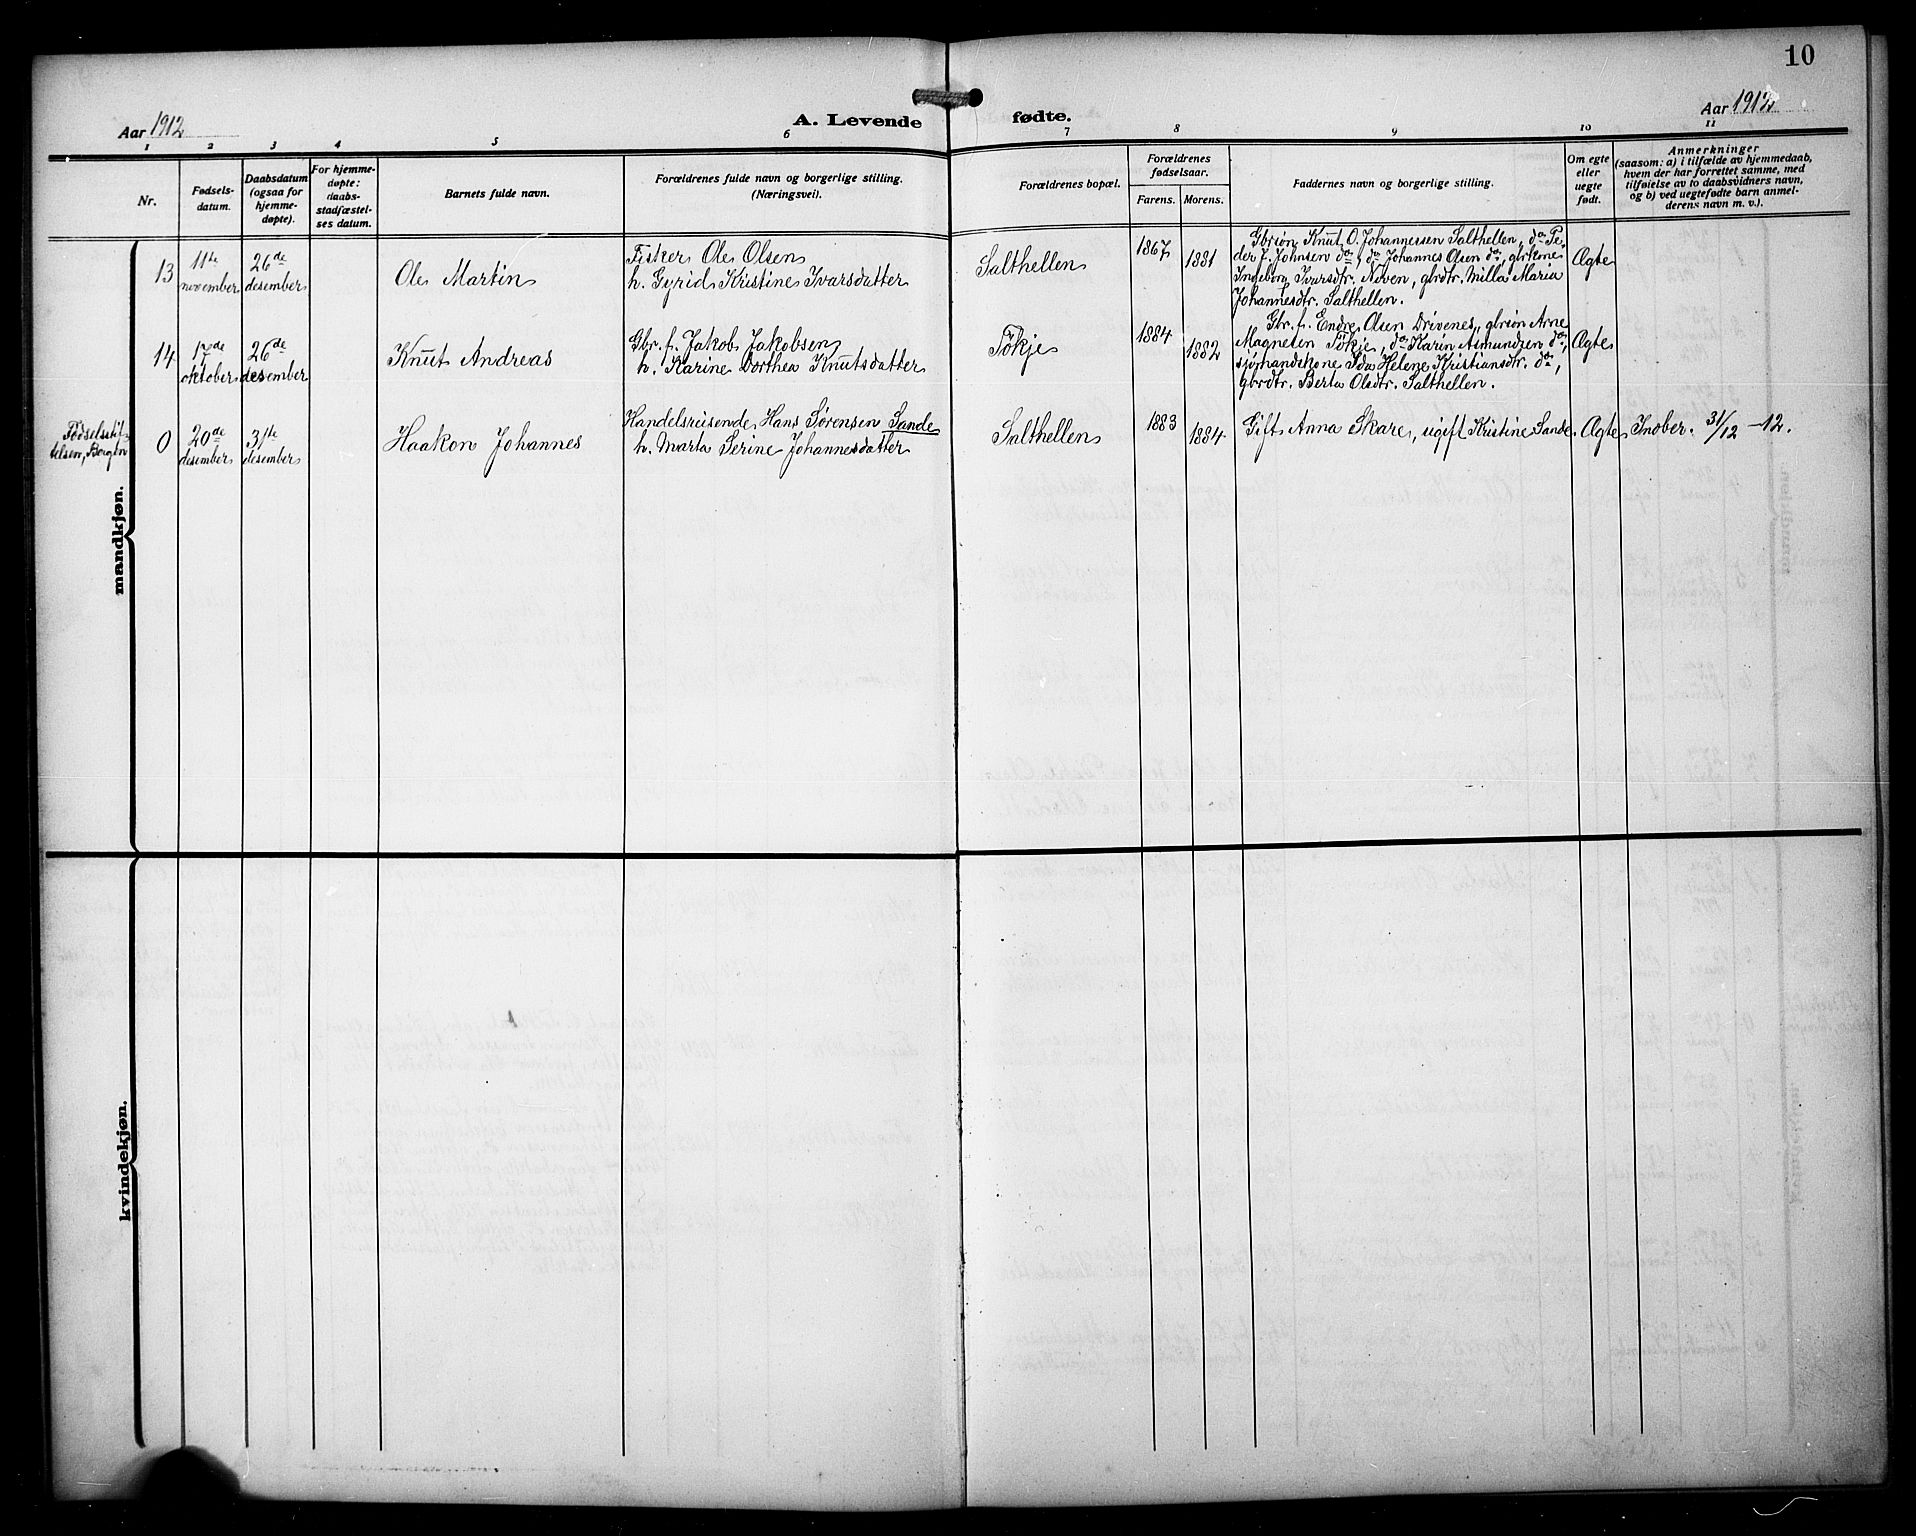 10
Aar 1912
A. Levende fødte.
Aar 1912
1 2 3 4 5 6 7 8 9 10 11
Nr.
Fødsels-
datum.
Daabsdatum
(ogsaa for
hjemme-
døpte).
For hjemme-
døpte:
daabs-
stadfæstel-
ses datum.
Barnets fulde navn.
Forældrenes fulde navn og borgerlige stilling.
(Næringsvei).
Forældrenes bopæl.
Forældrenes
fødselsaar.
Farens. Morens.
Faddernes navn og borgerlige stilling.
Om egte
eller
uegte
født.
Anmerkninger
(saasom: a) i tilfælde av hjemmedaab,
hvem der har forrettet samme, med
tilføielse av to daabsvidners navn,
og b) ved uegtefødte barn anmel-
derens navn m. v.).
mandkjøn.
13
11te
november
26de
desember
Ole Martin
Fisker Ole Olsen
h. Gyrid Kristine Ivarsdatter
Salthellen
1867
1881
Gbrsøn Knut O. Johannessen Salthellen, do Pe-
der J. Johnsen do, do Johannes Olsen do, gbrkone
Ingeborg Ivarsdtr. Neven, gbrdtr. Milla Maria
Johannesdtr. Salthellen.
Ægte
14
17de
oktober
26de
desember
Knut Andreas
Gbr. f. Jakob Jakobsen
h. Karine Dorthea Knutsdatter
Tökje
1884
1882
Gbr. f. Endre Olsen Drivenes, gbrsøn Arne
Magnesen Tökje, do Karin Asmundsen do,
sjømandskone Ida Helene Kristiansdtr. do,
gbrdtr. Berta Olsdtr. Salthellen.
Ægte
Fødselsstif-
telsen, Bergen
0
20de
desember
31te
desember
Haakon Johannes
Handelsreisende Hans Sørensen Sande
h. Marta Serine Johannesdatter
Salthellen
1883
1884
Gift Anna Skare, ugift Kristine Sande.
Ægte
Indber. 31/12 -12.
kvindekjøn.